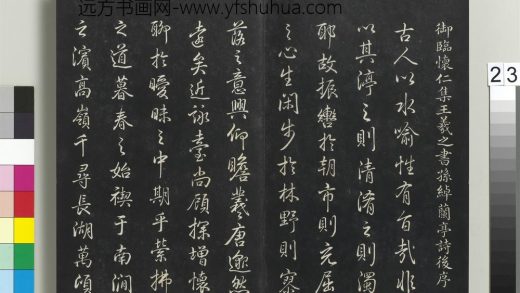 远方书画网-www.yfshuhua.com
御臨懷仁集王羲之書孫綽蘭亭詩後序
古人以水喻性有旨哉非
以其渟之則清淆之則濁
耶故振轡於朝市則充屈
之心生闲步於林野則寥
落之意興仰瞻羲唐邈然
遠矣近詠臺尚顧探增懷
聊於曖昧之中期乎縈拂
之道暮春之始禊于南澗
之濱高嶺千尋長湖萬頃
2 3